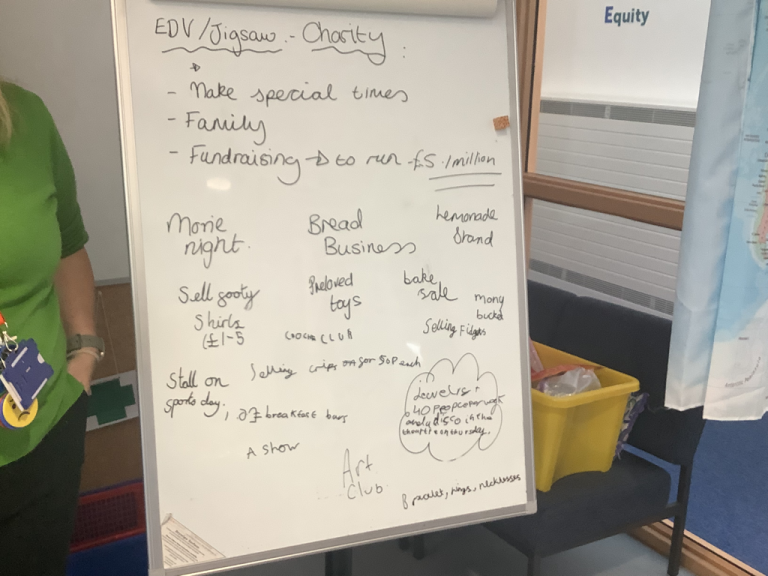 Equity
EDV/Jigsaw - Charity :
- Make special times
- Family
- Fundraising → to run - £5.1million
Movie
night.
Bread
Business
Lemonade
Stand
Sell footy
Shirts
(£1-5
Preloved
toys
bake
sale
mony
bucket
Selling Fidgets
CLUB
Stall on
sports day,
Selling crisps on for 50p each
breakfast bars
A show
Art
Club
disco in the
on thursday.
rings, necklesses